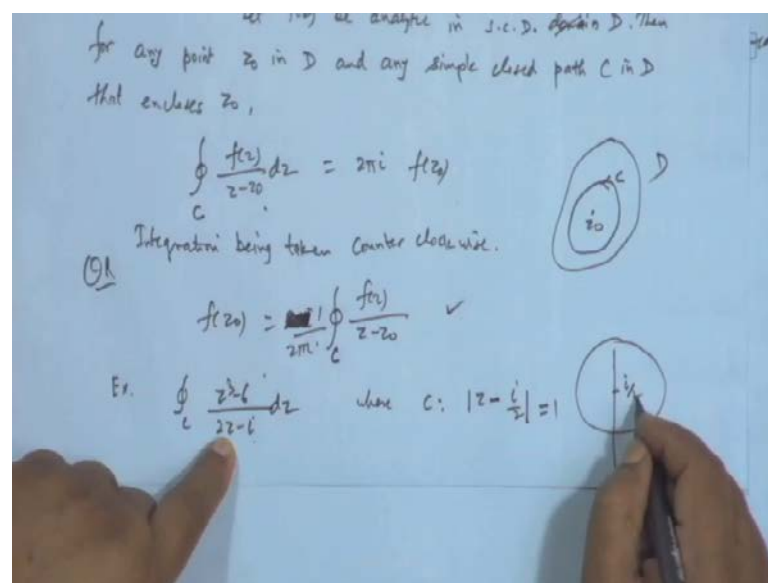 be analytic in s.c.D. domain D. Then
for any point z₀ in D and any simple closed path C in D
that encloses z₀,
∮_C f(z)/(z-z₀) dz = 2πi f(z₀)
D
C
z₀
Integration being taken counter clockwise.
OR
f(z₀) = 1/(2πi) ∮_C f(z)/(z-z₀) ✓
Ex. ∮_C (z³-6)/(2z-i) dz where C: |z - i/2| = 1